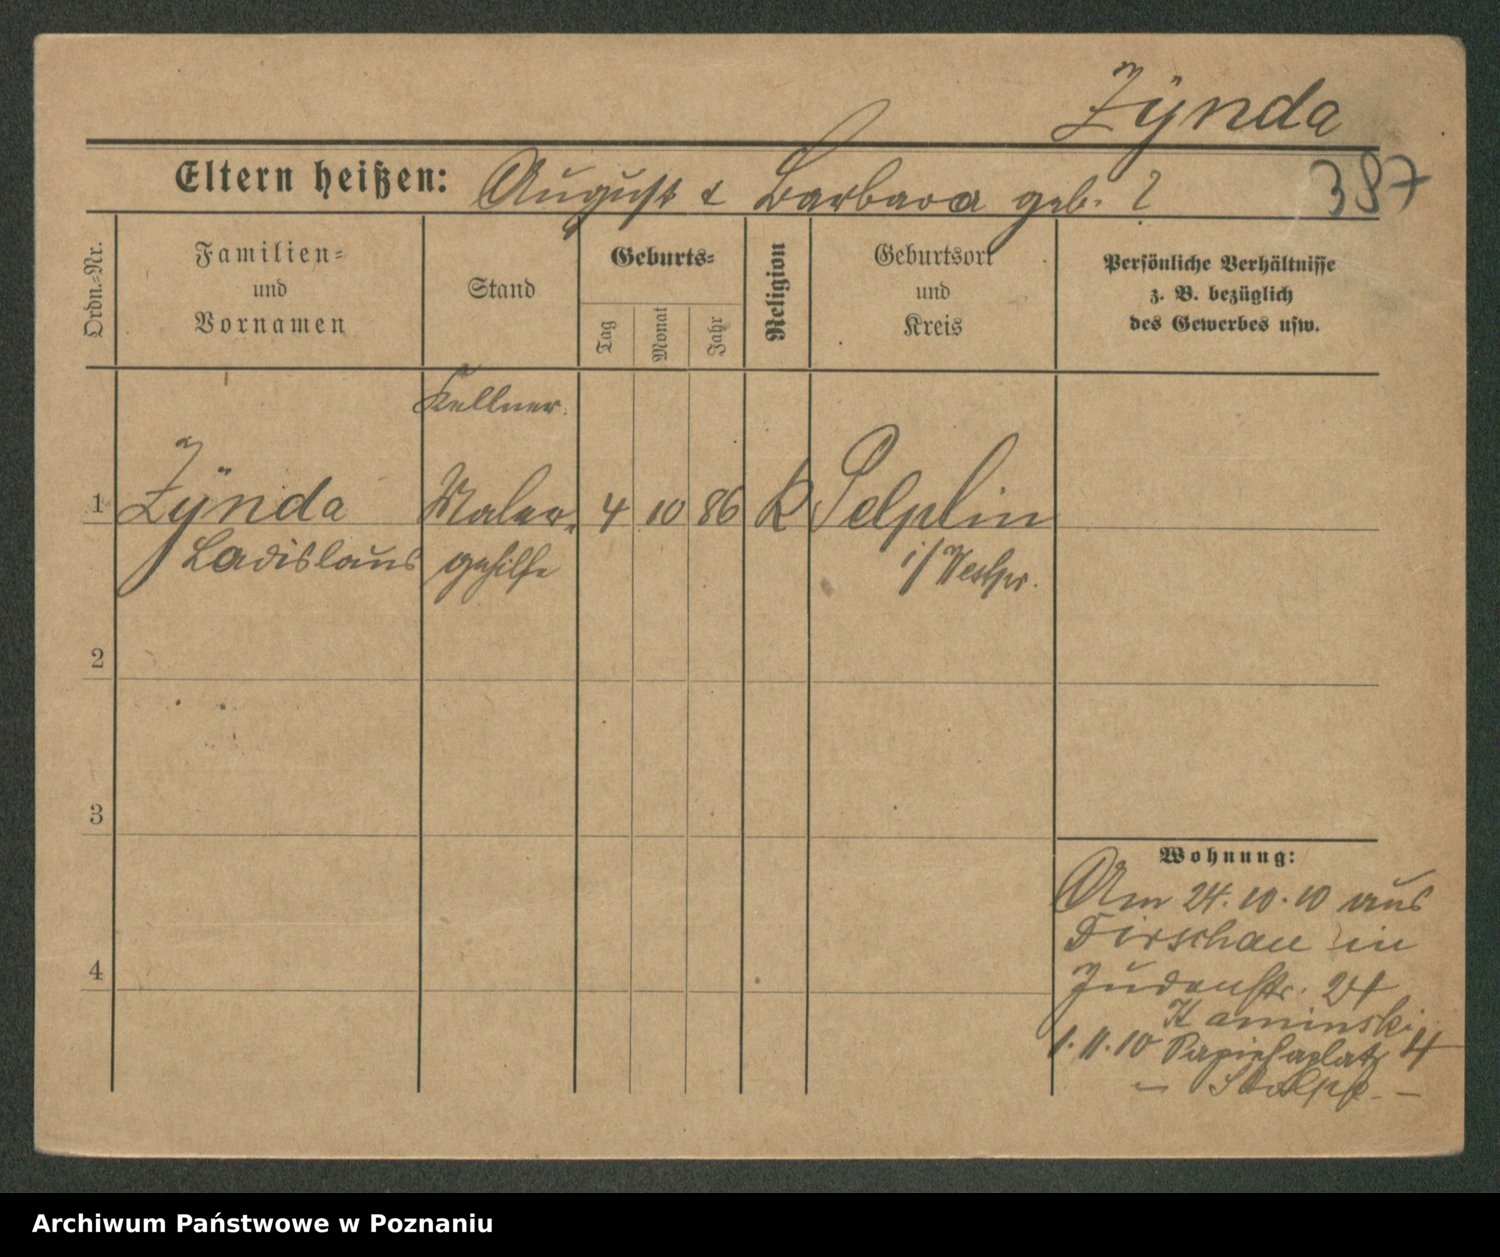 Zÿnda
Eltern heißen: August & Barbara geb. ?
387
Ordn.-Nr.
Familien-
und
Vornamen
Stand
Geburts-
Tag
Monat
Jahr
Religion
Geburtsort
und
Kreis
Persönliche Verhältnisse
z. B. bezüglich
des Gewerbes usw.
Kellner.
1 Zÿnda Maler- 4 10 86 K Pelplin
Ladislaus gehilfe i/Westpr.
2
3
4
Wohnung:
Am 24.10.10 aus
Dirschau in
Judenstr. 24
Kaminski
1.11.10 Sapiehaplatz 4
- Stolpe -
Archiwum Państwowe w Poznaniu